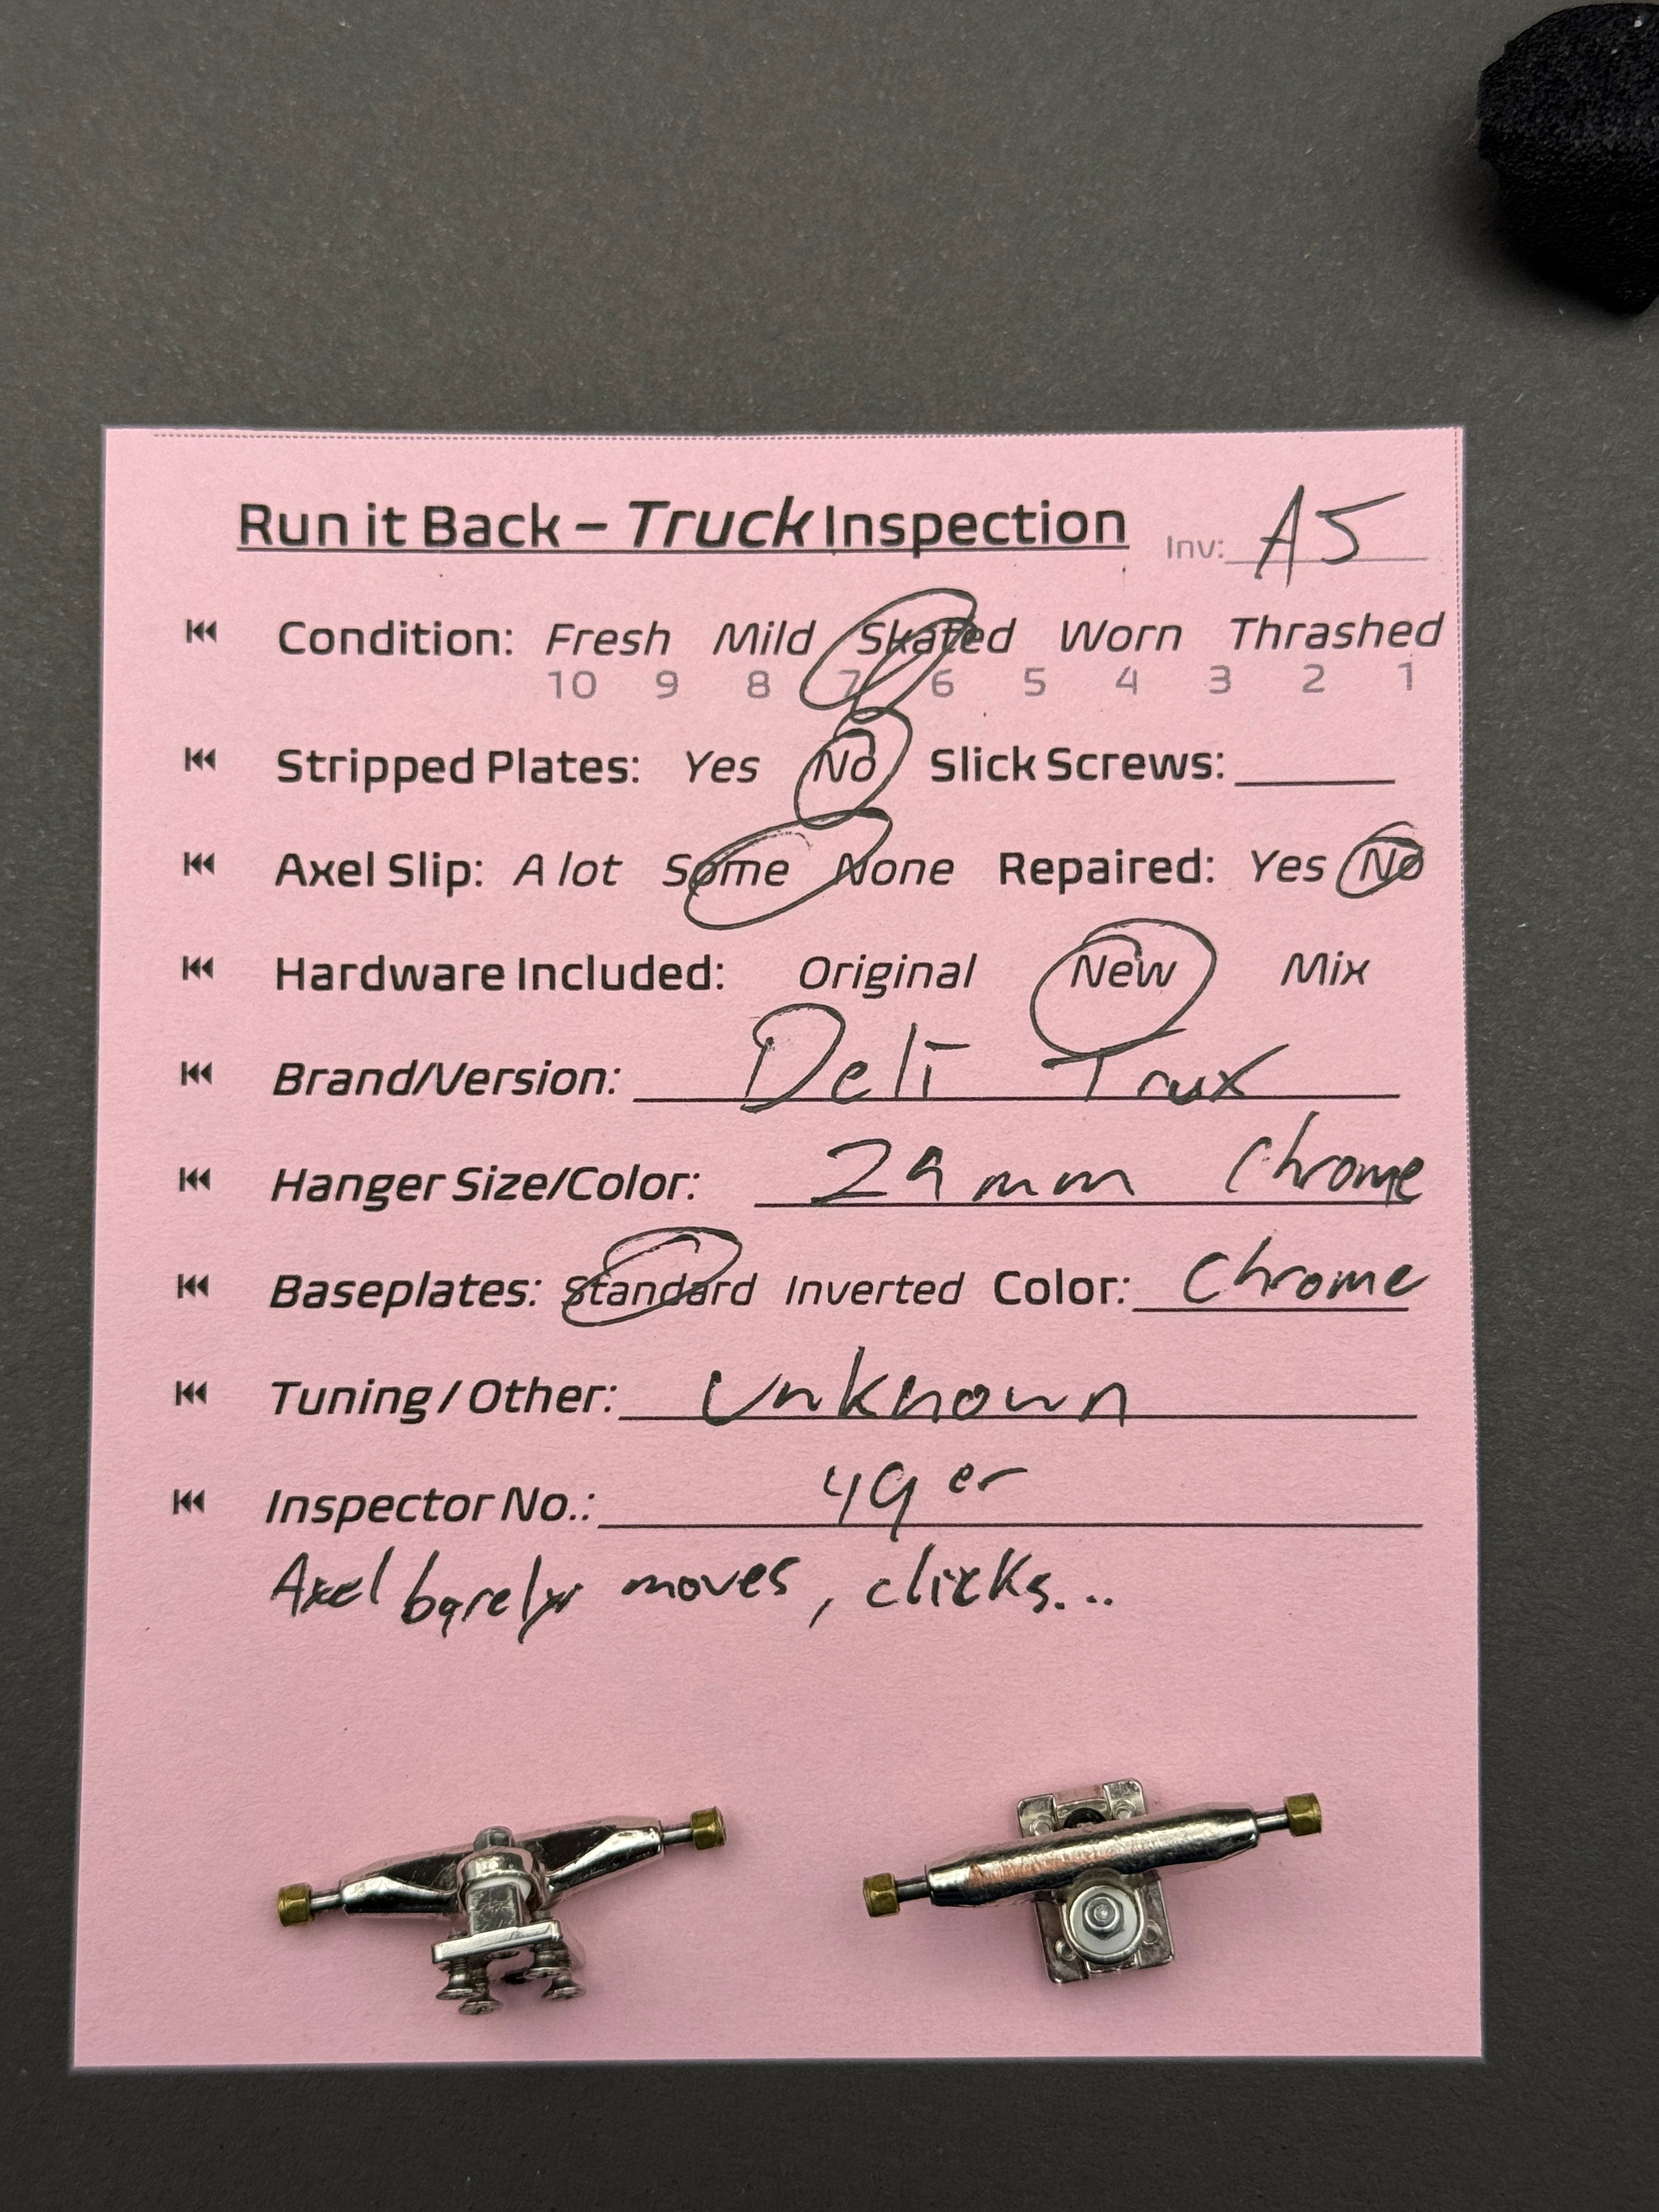 Run it Back – Truck Inspection Inv: A5
Condition: Fresh Mild Skated Worn Thrashed
10 9 8 7 6 5 4 3 2 1
Stripped Plates: Yes No Slick Screws:
Axel Slip: A lot Some None Repaired: Yes No
Hardware Included: Original New Mix
Brand/Version: Deli Trux
Hanger Size/Color: 29mm Chrome
Baseplates: Standard Inverted Color: Chrome
Tuning / Other: Unknown
Inspector No.: 49er
Axel barely moves, clicks...